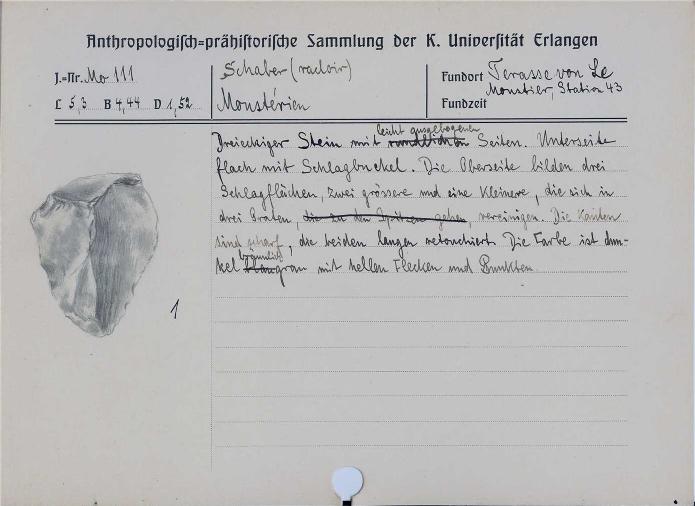 Anthropologisch=prähistorische Sammlung der K. Universität Erlangen
J.=Nr. Mo 111
L 5,3 B 4,44 D 1,52
Schaber (racloir)
Moustérien
Fundort Terasse von Le
Moustier, Station 43
Fundzeit
leicht ausgebogenen
Dreieckiger Stein mit rundlichen Seiten. Unterseite
flach mit Schlagbuckel. Die Oberseite bilden drei
Schlagflächen, zwei grössere und eine kleinere, die sich in
drei Graten, die zu den Spitzen gehen, vereinigen. Die Kanten
sind scharf, die beiden langen retouchiert. Die Farbe ist dun-
bräunlich
kel blaugrau mit hellen Flecken und Punkten.
1